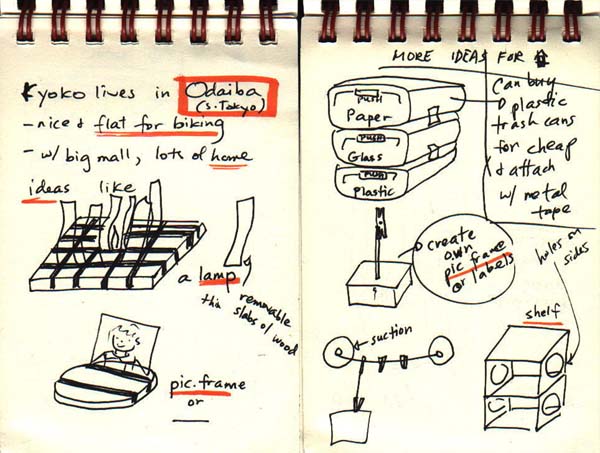 Kyoko lives in Odaiba
(S. Tokyo)
- nice & flat for biking
- w/ big mall, lots of home
ideas like
a lamp
removable
thin slabs of wood
pic. frame
or
MORE IDEAS FOR
PUSH
Paper
PUSH
Glass
PUSH
Plastic
Can buy
plastic
trash cans
for cheap
& attach
w/ metal
tape
create
own
pic frame
or labels
holes on
sides
suction
shelf